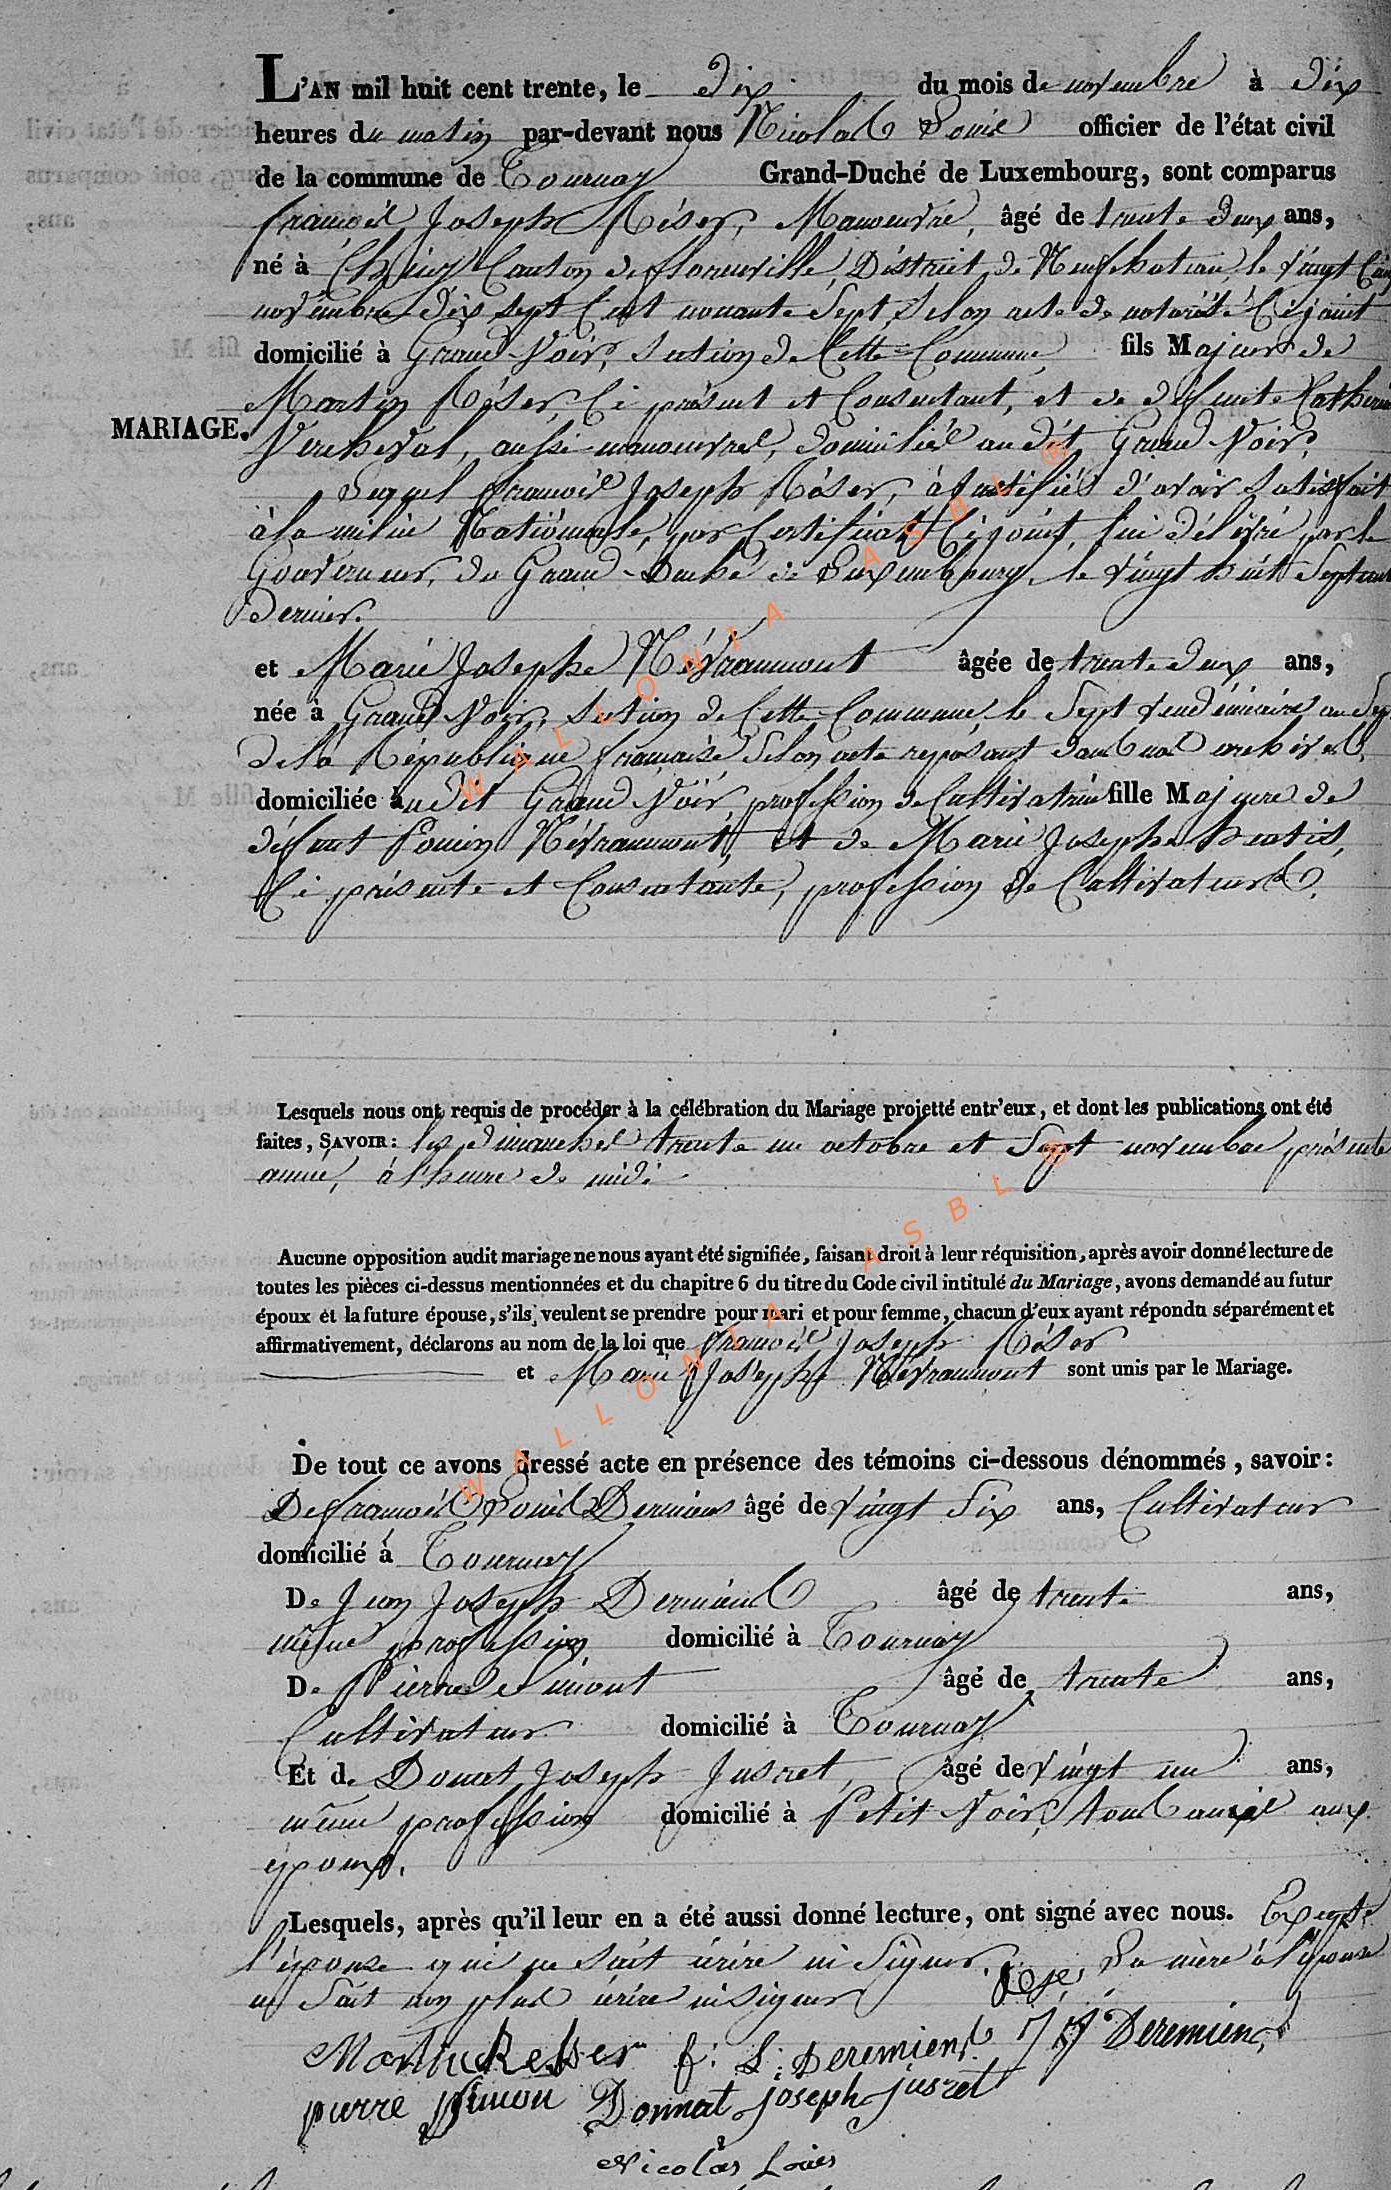 L'AN mil huit cent trente, le dix du mois de novembre à dix
heures du matin par-devant nous Nicolas Louis officier de l'état civil
de la commune de Tournay Grand-Duché de Luxembourg, sont comparus
françois Joseph Réser, Manouvré, âgé de trente deux ans,
né à Canton de florenville, District de Neufchateau, le vingt
novembre dix sept Cent nonante Sept, Selon acte de notoriété Ci joint
domicilié à Grand-Voir, Section de Cette Commune, fils Majeur de
MARIAGE.
Martin Réser, Ci présent et Consentant, et de défunte Catherine
Vercheval, aussi manouvres, domiciliés au dit Grand Voir,
Lequel françois Joseph Réser, à justifié d'avoir satisfait
à la milice Nationale, par Certificat Ci joint, lui délivré par le
Gouverneur, du Grand-Duché de Luxembourg, le vingt huit Septembre
Dernier.
et Marie Josephe Névraumont âgée de trente deux ans,
née à Grand Voir, Section de Cette Commune, le Sept vendémiaire an Sep
de la République française Selon acte reposant dans nos archives,
domiciliée audit Grand Voir, profession de Cultivatrice fille Majeure de
défunt Poncin Névraumont, et de Marie Josephe
Ci présente et Consentante, profession de Cultivateurs.
Lesquels nous ont requis de procéder à la célébration du Mariage projetté entr'eux, et dont les publications ont été
faites, SAVOIR : les dimanches trente un octobre et Sept novembre présente
année, à l'heure de midi
Aucune opposition audit mariage ne nous ayant été signifiée, faisant droit à leur réquisition, après avoir donné lecture de
toutes les pièces ci-dessus mentionnées et du chapitre 6 du titre du Code civil intitulé du Mariage, avons demandé au futur
époux et la future épouse, s'ils veulent se prendre pour mari et pour femme, chacun d'eux ayant répondu séparément et
affirmativement, déclarons au nom de la loi que françois Joseph Réser
et Marie Josephe Névraumont sont unis par le Mariage.
De tout ce avons dressé acte en présence des témoins ci-dessous dénommés, savoir :
De françois Louis Deremiens âgé de vingt Six ans, Cultivateur
domicilié à Tournay
De Jean Joseph Deremiens âgé de trente ans,
même profession domicilié à Tournay
De Pierre Simont âgé de trente ans,
Cultivateur domicilié à Tournay
Et de Donat Joseph Jusret, âgé de vingt un ans,
même profession domicilié à Petit Voir, tous amis aux
époux.
Lesquels, après qu'il leur en a été aussi donné lecture, ont signé avec nous. Excepté
l'épouse qui ne Sait écrire ni Signer. La mère à l'épouse
ne Sait non plus écrire ni signer
Martin Resser f: L: Deremiens J J Deremiens
pierre simon Donnat joseph jusret
Nicolas Louis
WALLONIA ASBL ®
WALLONIA ASBL ®